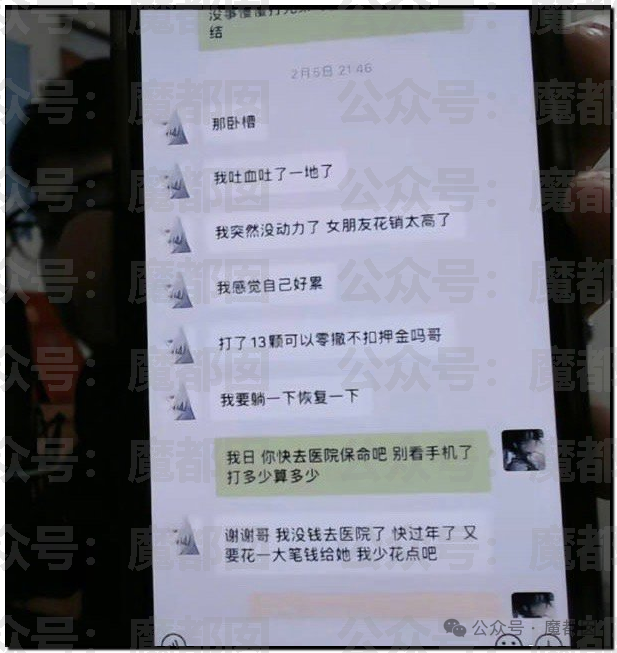 没事慢慢打兄弟
结
2月5日 21:46
那卧槽
我吐血吐了一地了
我突然没动力了 女朋友花销太高了
我感觉自己好累
打了13颗可以零撤不扣押金吗哥
我要躺一下恢复一下
我日 你快去医院保命吧 别看手机了
打多少算多少
谢谢哥 我没钱去医院了 快过年了 又
要花一大笔钱给她 我少花点吧
公众号:魔都囡
公众号 · 魔都囡